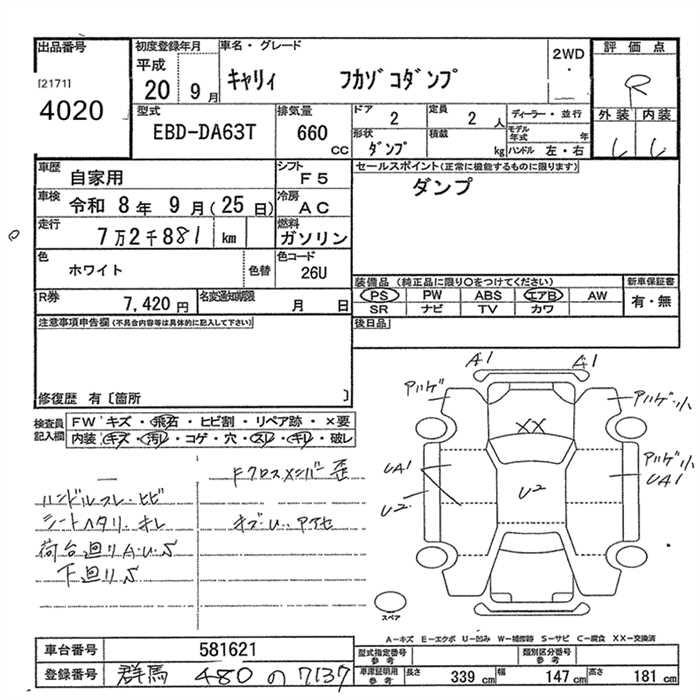 出品番号
[2171]
4020
初度登録年月
平成
20 9月
車名・グレード
キャリィ フカゾコダンプ
2WD
評価点
R
外装 内装
型式
EBD-DA63T
排気量
660 cc
ドア
2
定員
2 人
ディーラー・並行
形状
ダンプ
積載
kg
モデル年式 年
ハンドル 左・右
車歴
自家用
シフト
F5
車検
令和 8年 9月(25日)
冷房
AC
走行
7万2千881 km
燃料
ガソリン
色
ホワイト
色替
色コード
26U
R券
7,420円
名変通知期限
月 日
セールスポイント(正常に機能するものに限ります)
ダンプ
装備品(純正品に限り○をつけてください)
PS PW ABS エアB AW
SR ナビ TV カワ
新車保証書
有・無
後日品
注意事項申告欄(不具合内容等は具体的に記入して下さい)
修復歴 有〔箇所 〕
検査員記入欄
FW キズ・飛石・ヒビ割・リペア跡・×要
内装 キズ・汚レ・コゲ・穴・スレ・キレ・破レ
Fクロスメンバー歪
ハンドルスレ・ヒビ
シートヘタリ・キレ
キズ・U・アアセ
荷台廻りA・U・S
下廻りS
A1 A1
アルゲ
アルゲ小
XX
UA1
U2
U2
アルゲ小
UA1
スペア
A-キズ E-エクボ U-凹み W-補修跡 S-サビ C-腐食 XX-交換済
車台番号
581621
登録番号
群馬 480 の 7137
型式指定番号
参考
類別区分番号
参考
車庫証明
参考
長さ 339 cm 幅 147 cm 高さ 181 cm